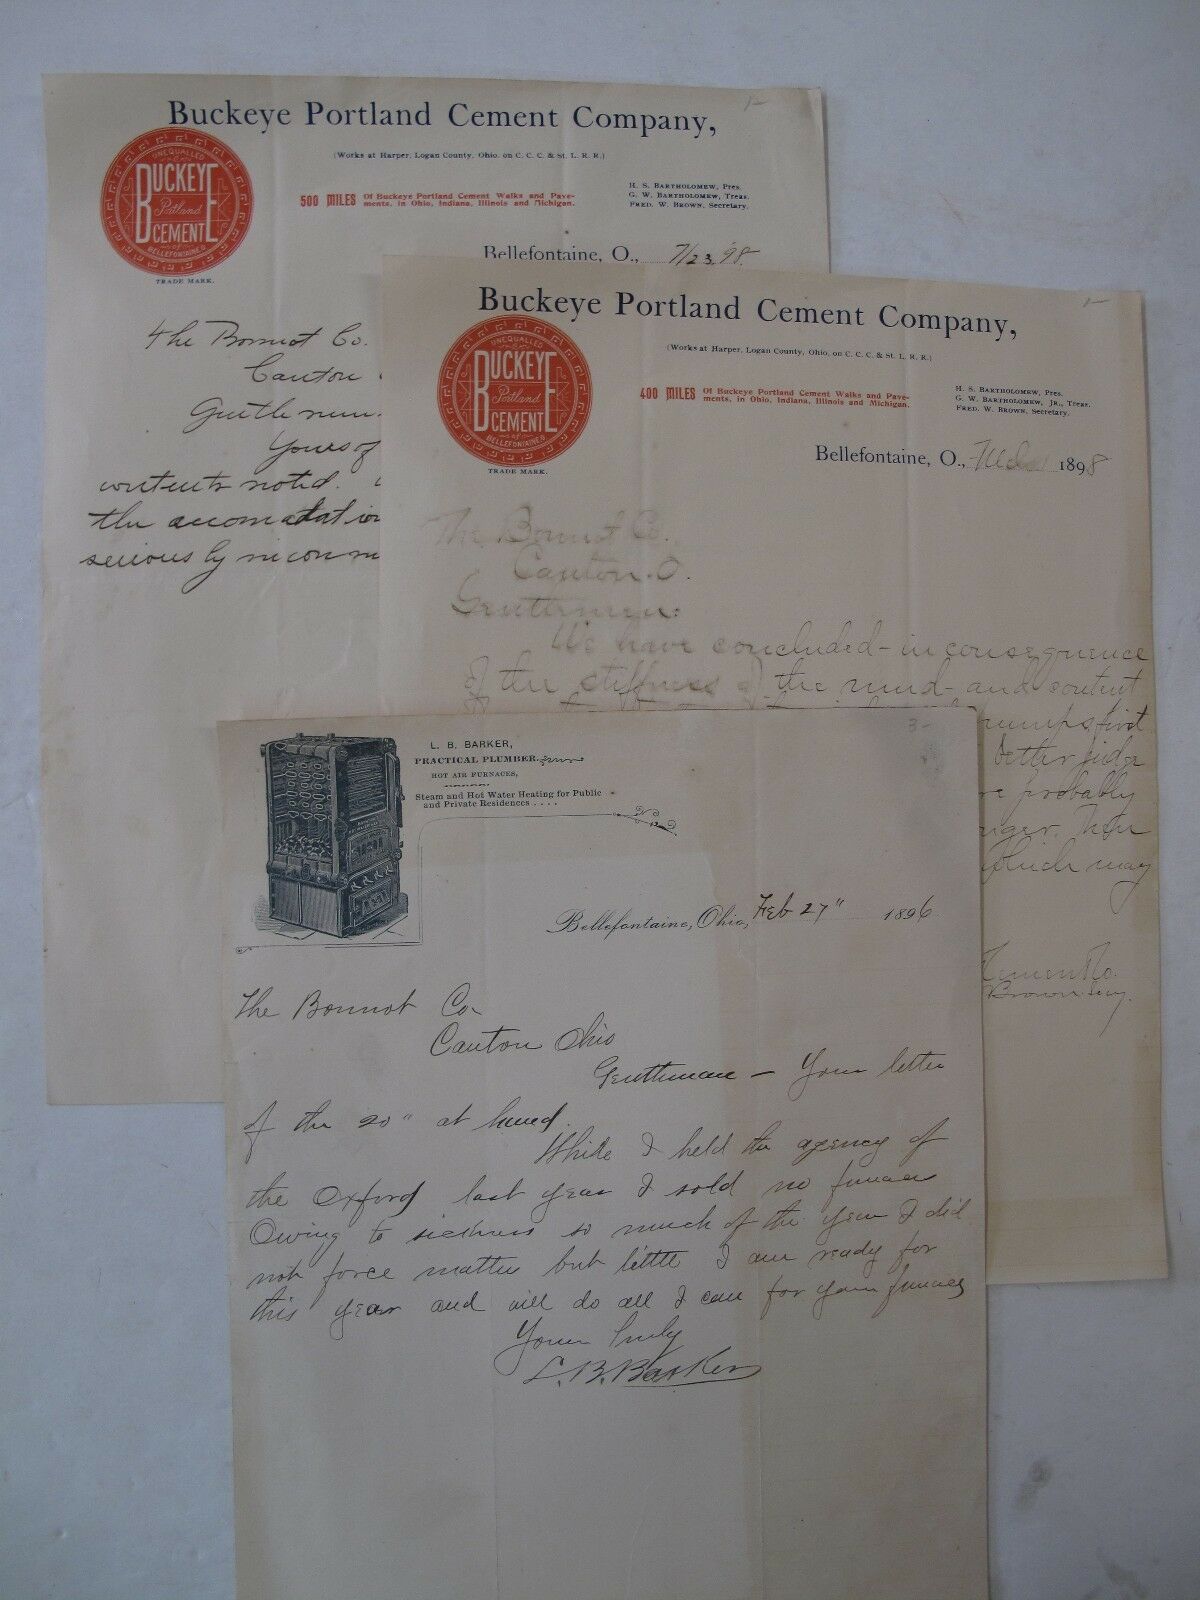 Buckeye Portland Cement Company,
(Works at Harper, Logan County, Ohio, on C. C. C. & St. L. R. R.)
UNEQUALLED
BUCKEYE
Portland
CEMENT
of
BELLEFONTAINE O
TRADE MARK.
500 MILES Of Buckeye Portland Cement Walks and Pave-
ments, in Ohio, Indiana, Illinois and Michigan.
H. S. BARTHOLOMEW, Pres.
G. W. BARTHOLOMEW, Treas.
FRED. W. BROWN, Secretary.
Bellefontaine, O., 7/23, '98.
The Bonnot Co.
Canton
Gentlemen.
Yours of
contents noted.
the accomadation
seriously
Buckeye Portland Cement Company,
(Works at Harper, Logan County, Ohio, on C. C. C. & St. L. R. R.)
UNEQUALLED
BUCKEYE
Portland
CEMENT
of
BELLEFONTAINE O
TRADE MARK.
400 MILES Of Buckeye Portland Cement Walks and Pave-
ments, in Ohio, Indiana, Illinois and Michigan.
H. S. BARTHOLOMEW, Pres.
G. W. BARTHOLOMEW, JR., Treas.
FRED. W. BROWN, Secretary.
Bellefontaine, O., 1898
The Bonnot Co.
Canton. O.
Gentlemen:
We have concluded - in consequence
of the stiffness of the mud - and content
pumps, first
better judge
probably
Then
which may
Cement Co.
Brown Secy.
3-
L. B. BARKER,
PRACTICAL PLUMBER.
HOT AIR FURNACES,
Steam and Hot Water Heating for Public
and Private Residences ....
Bellefontaine, Ohio, Feb 27" 1896
The Bonnot Co.
Canton Ohio
Gentleman - Your letter
of the 20" at hand.
While I held the agency of
the Oxford last year I sold no furnaces
Owing to sickness so much of the year I did
not force matters but little I am ready for
this year and will do all I can for your furnaces
Yours truly
L. B. Barker